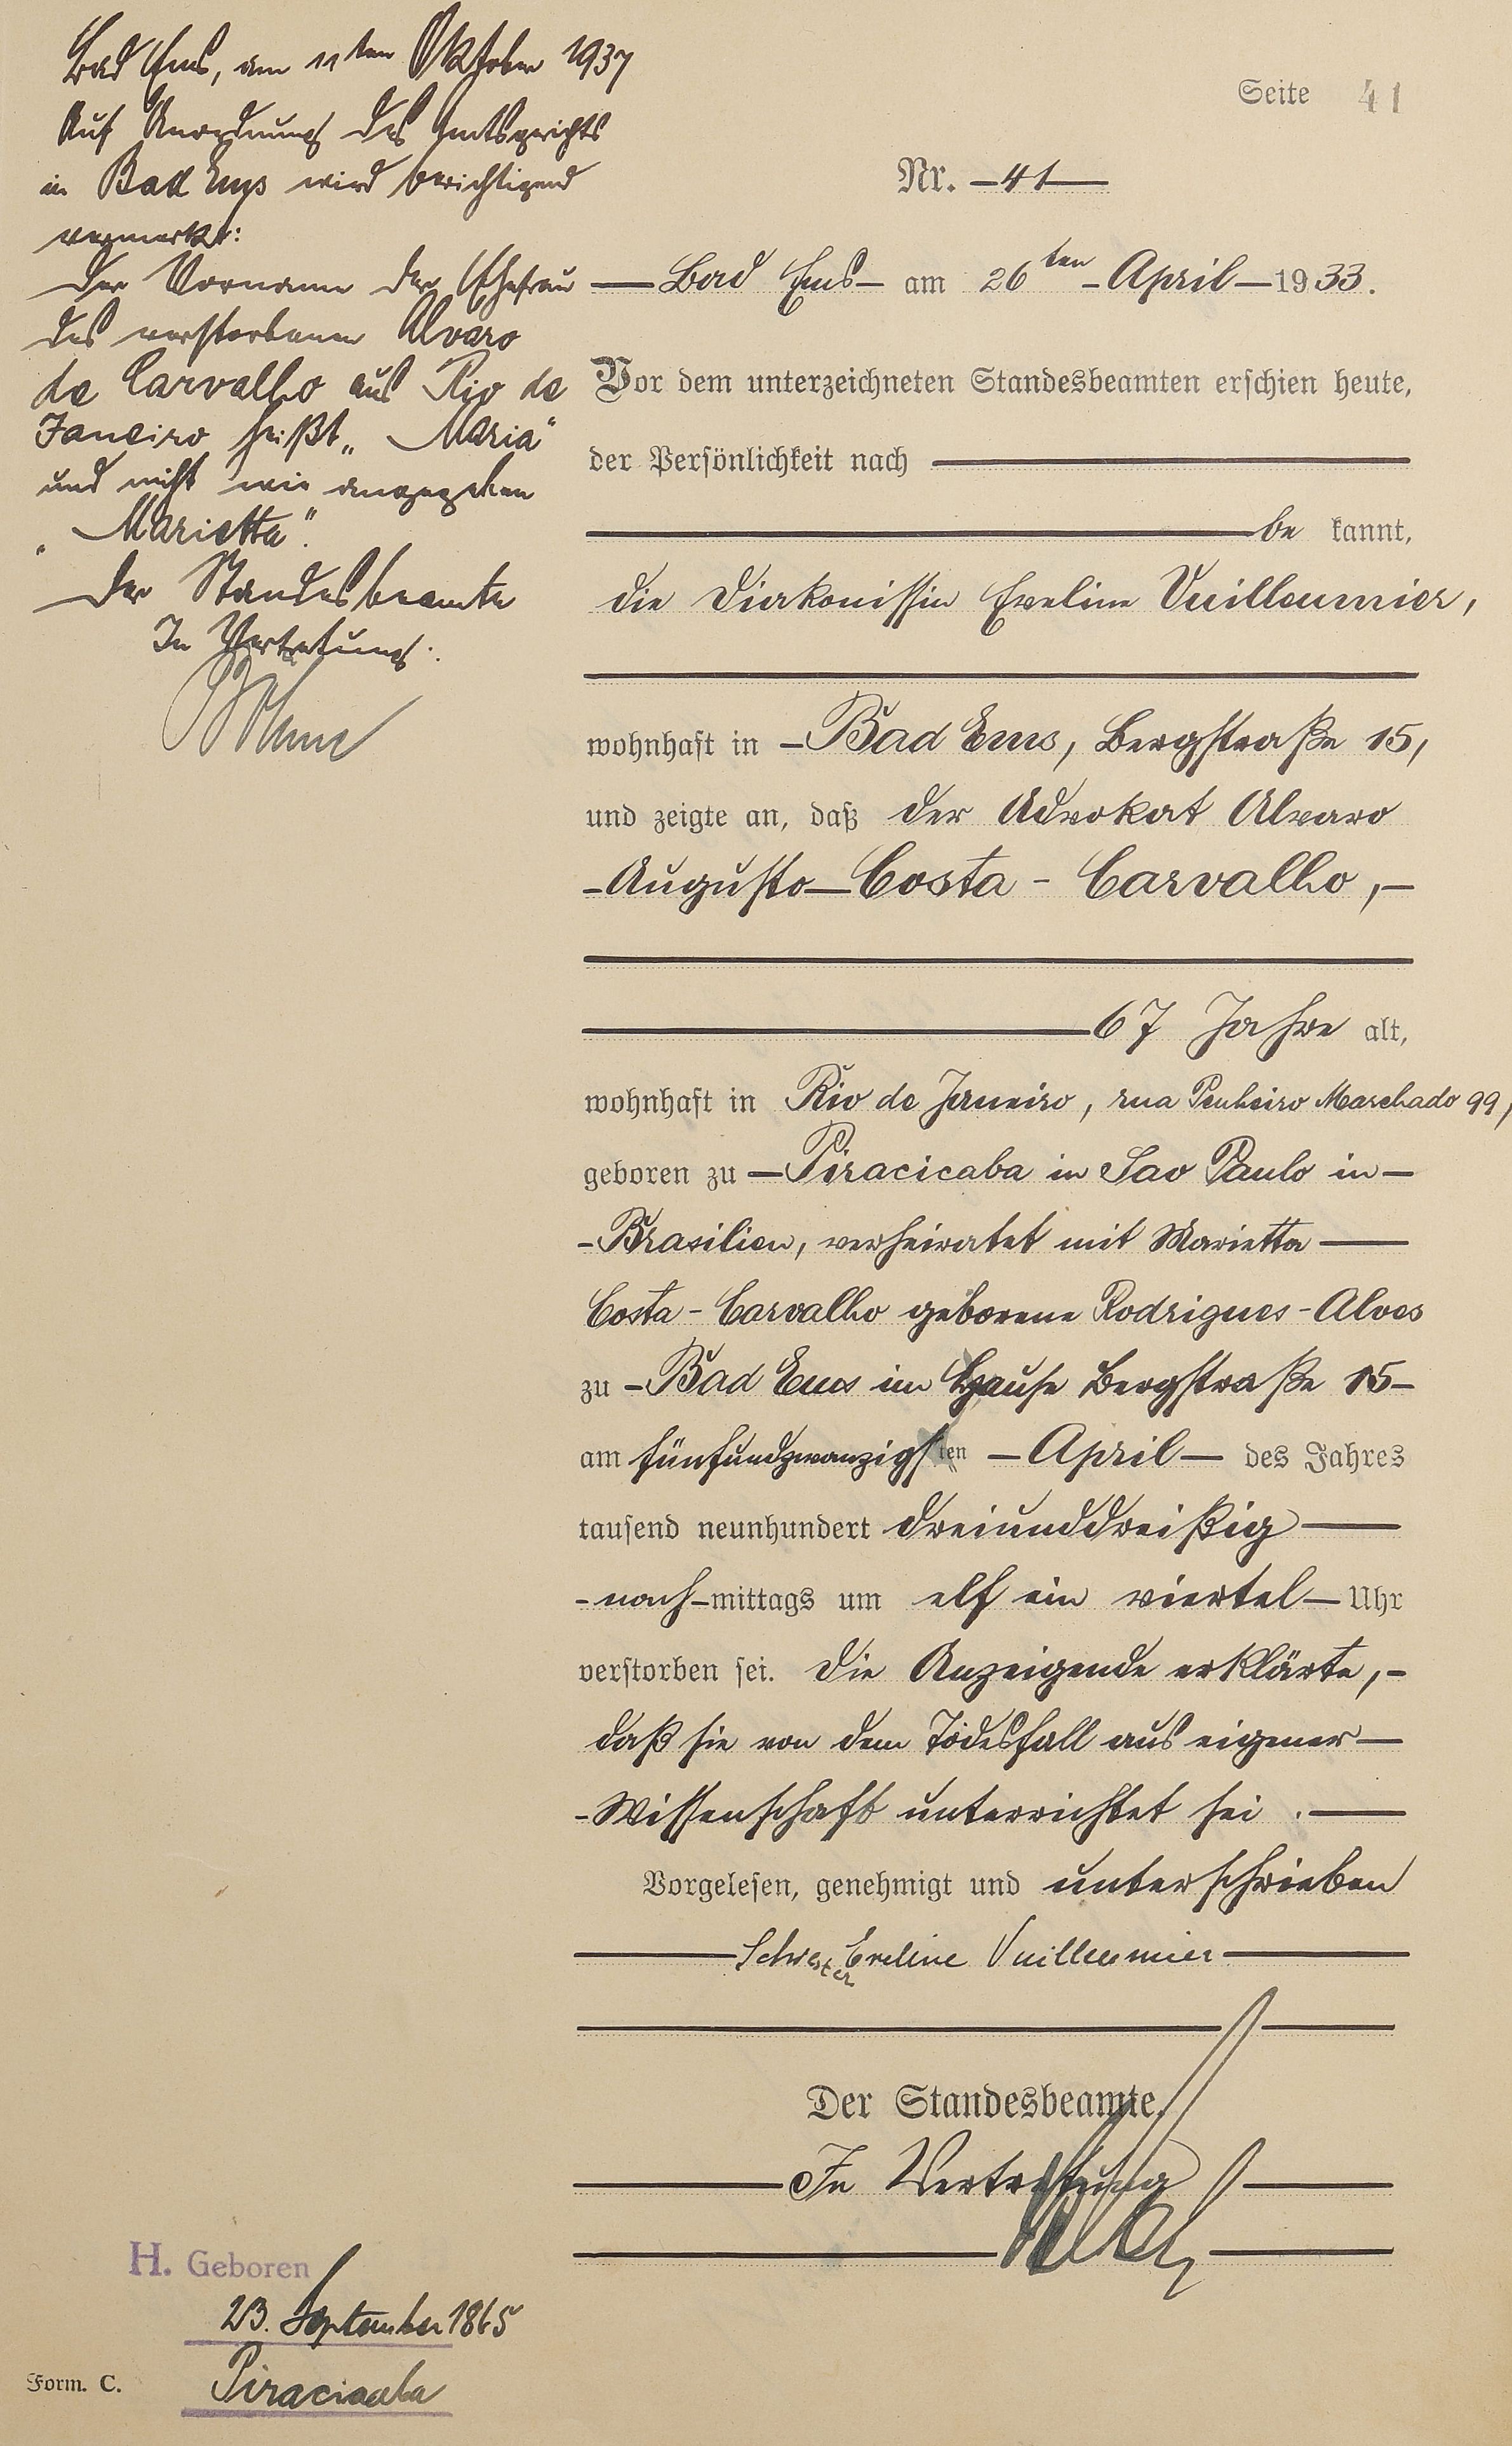 Bad Ems, am 11ten Oktober 1937
Auf Anordnung des Amtsgerichts
in Bad Ems wird berichtigend
vermerkt:
Der Vorname der Ehefrau
des verstorbenen Alvaro
de Carvalho aus Rio de
Janeiro heißt „Maria"
und nicht wie angegeben
„Marietta".
Der Standesbeamte
In Vertretung.
Seite 41
Nr. 41
Bad Ems am 26ten April 1933.
Vor dem unterzeichneten Standesbeamten erschien heute,
der Persönlichkeit nach
be kannt,
die Diakonissin Eveline Vuilleumier,
wohnhaft in Bad Ems, Bergstraße 15,
und zeigte an, daß der Advokat Alvaro
Augusto Costa-Carvalho,
67 Jahre alt,
wohnhaft in Rio de Janeiro, rua Penheiro Marchado 99,
geboren zu Piracicaba in Sao Paulo in
Brasilien, verheiratet mit Marietta
Costa-Carvalho geborene Rodrigues-Alves
zu Bad Ems im Hause Bergstraße 15
am fünfundzwanzigsten April des Jahres
tausend neunhundert dreiunddreißig
nach-mittags um elf ein viertel Uhr
verstorben sei. Die Anzeigende erklärte,
daß sie von dem Todesfall aus eigener
Wissenschaft unterrichtet sei.
Vorgelesen, genehmigt und unterschrieben
Schwester Eveline Vuilleumier
Der Standesbeamte.
In Vertretung
H. Geboren
23. September 1865
Piracicaba
Form. C.